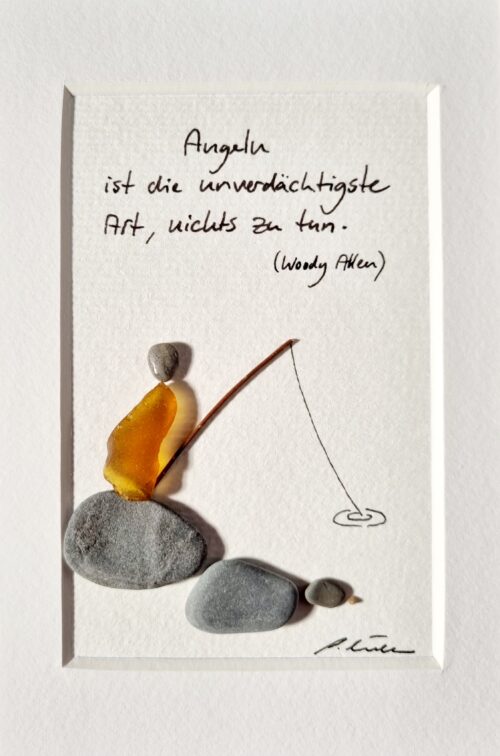 Angeln
ist die unverdächtigste
Art, nichts zu tun.
(Woody Allen)